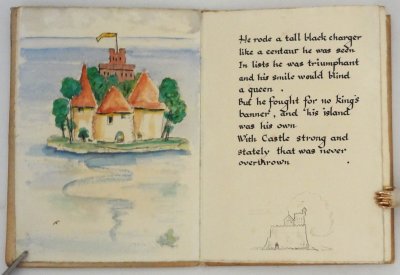 He rode a tall black charger
like a centaur he was seen
In lists he was triumphant
and his smile would blind
a queen .
But he fought for no king's
banner, and his island
was his own
With Castle strong and
stately that was never
overthrown .